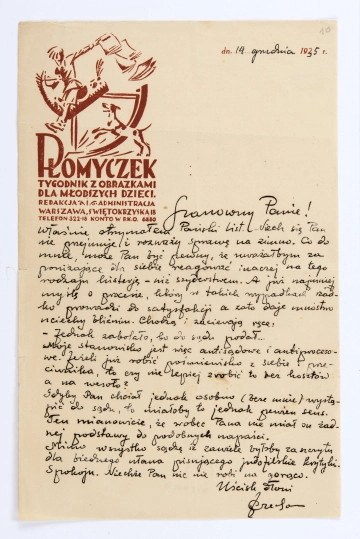 10
dn. 14 grudnia 1935 r.
PŁOMYCZEK
TYGODNIK Z OBRAZKAMI
DLA MŁODSZYCH DZIECI.
REDAKCJA I ADMINISTRACJA
WARSZAWA, ŚWIĘTOKRZYSKA 18
TELEFON 322-18 KONTO W P.K.O. 6630
Szanowny Panie!
Właśnie otrzymałem Pański list. Niech się Pan
nie przejmuje i rozważy sprawę na zimno. Co do
mnie, może Pan być pewny, że uważałbym za
poniżające dla siebie reagować inaczej na tego
rodzaju – nie szyderstwem. A już najmniej
myślę o procesie, który w takich wypadkach rzad-
ko prowadzi do satysfakcji a cato daje mnóstwo
uciechy bliźnim. Chodzą i zacierają ręce:
– Jednak zabolało, bo do sądu podał...
Moje stanowisko jest więc antisądowe i antiproceso-
we. Jeżeli już robić pośmiewisko z siebie i prze-
ciwnika, to czy nie lepiej zrobić to bez kosztów
a na wesoło?
Gdyby Pan chciał jednak osobno (beze mnie) wystą-
pić do sądu, to miałoby to jednak pewien sens.
Ten mianowicie, że wobec Pana nie miał on żad-
nej podstawy do podobnych napaści.
Mimo wszystko sądzę że zanadto byłoby zaszczytu
dla biednego pisującego krytyki.
Spokoju. Niechże Pan nic nie robi na gorąco.
Uścisk dłoni